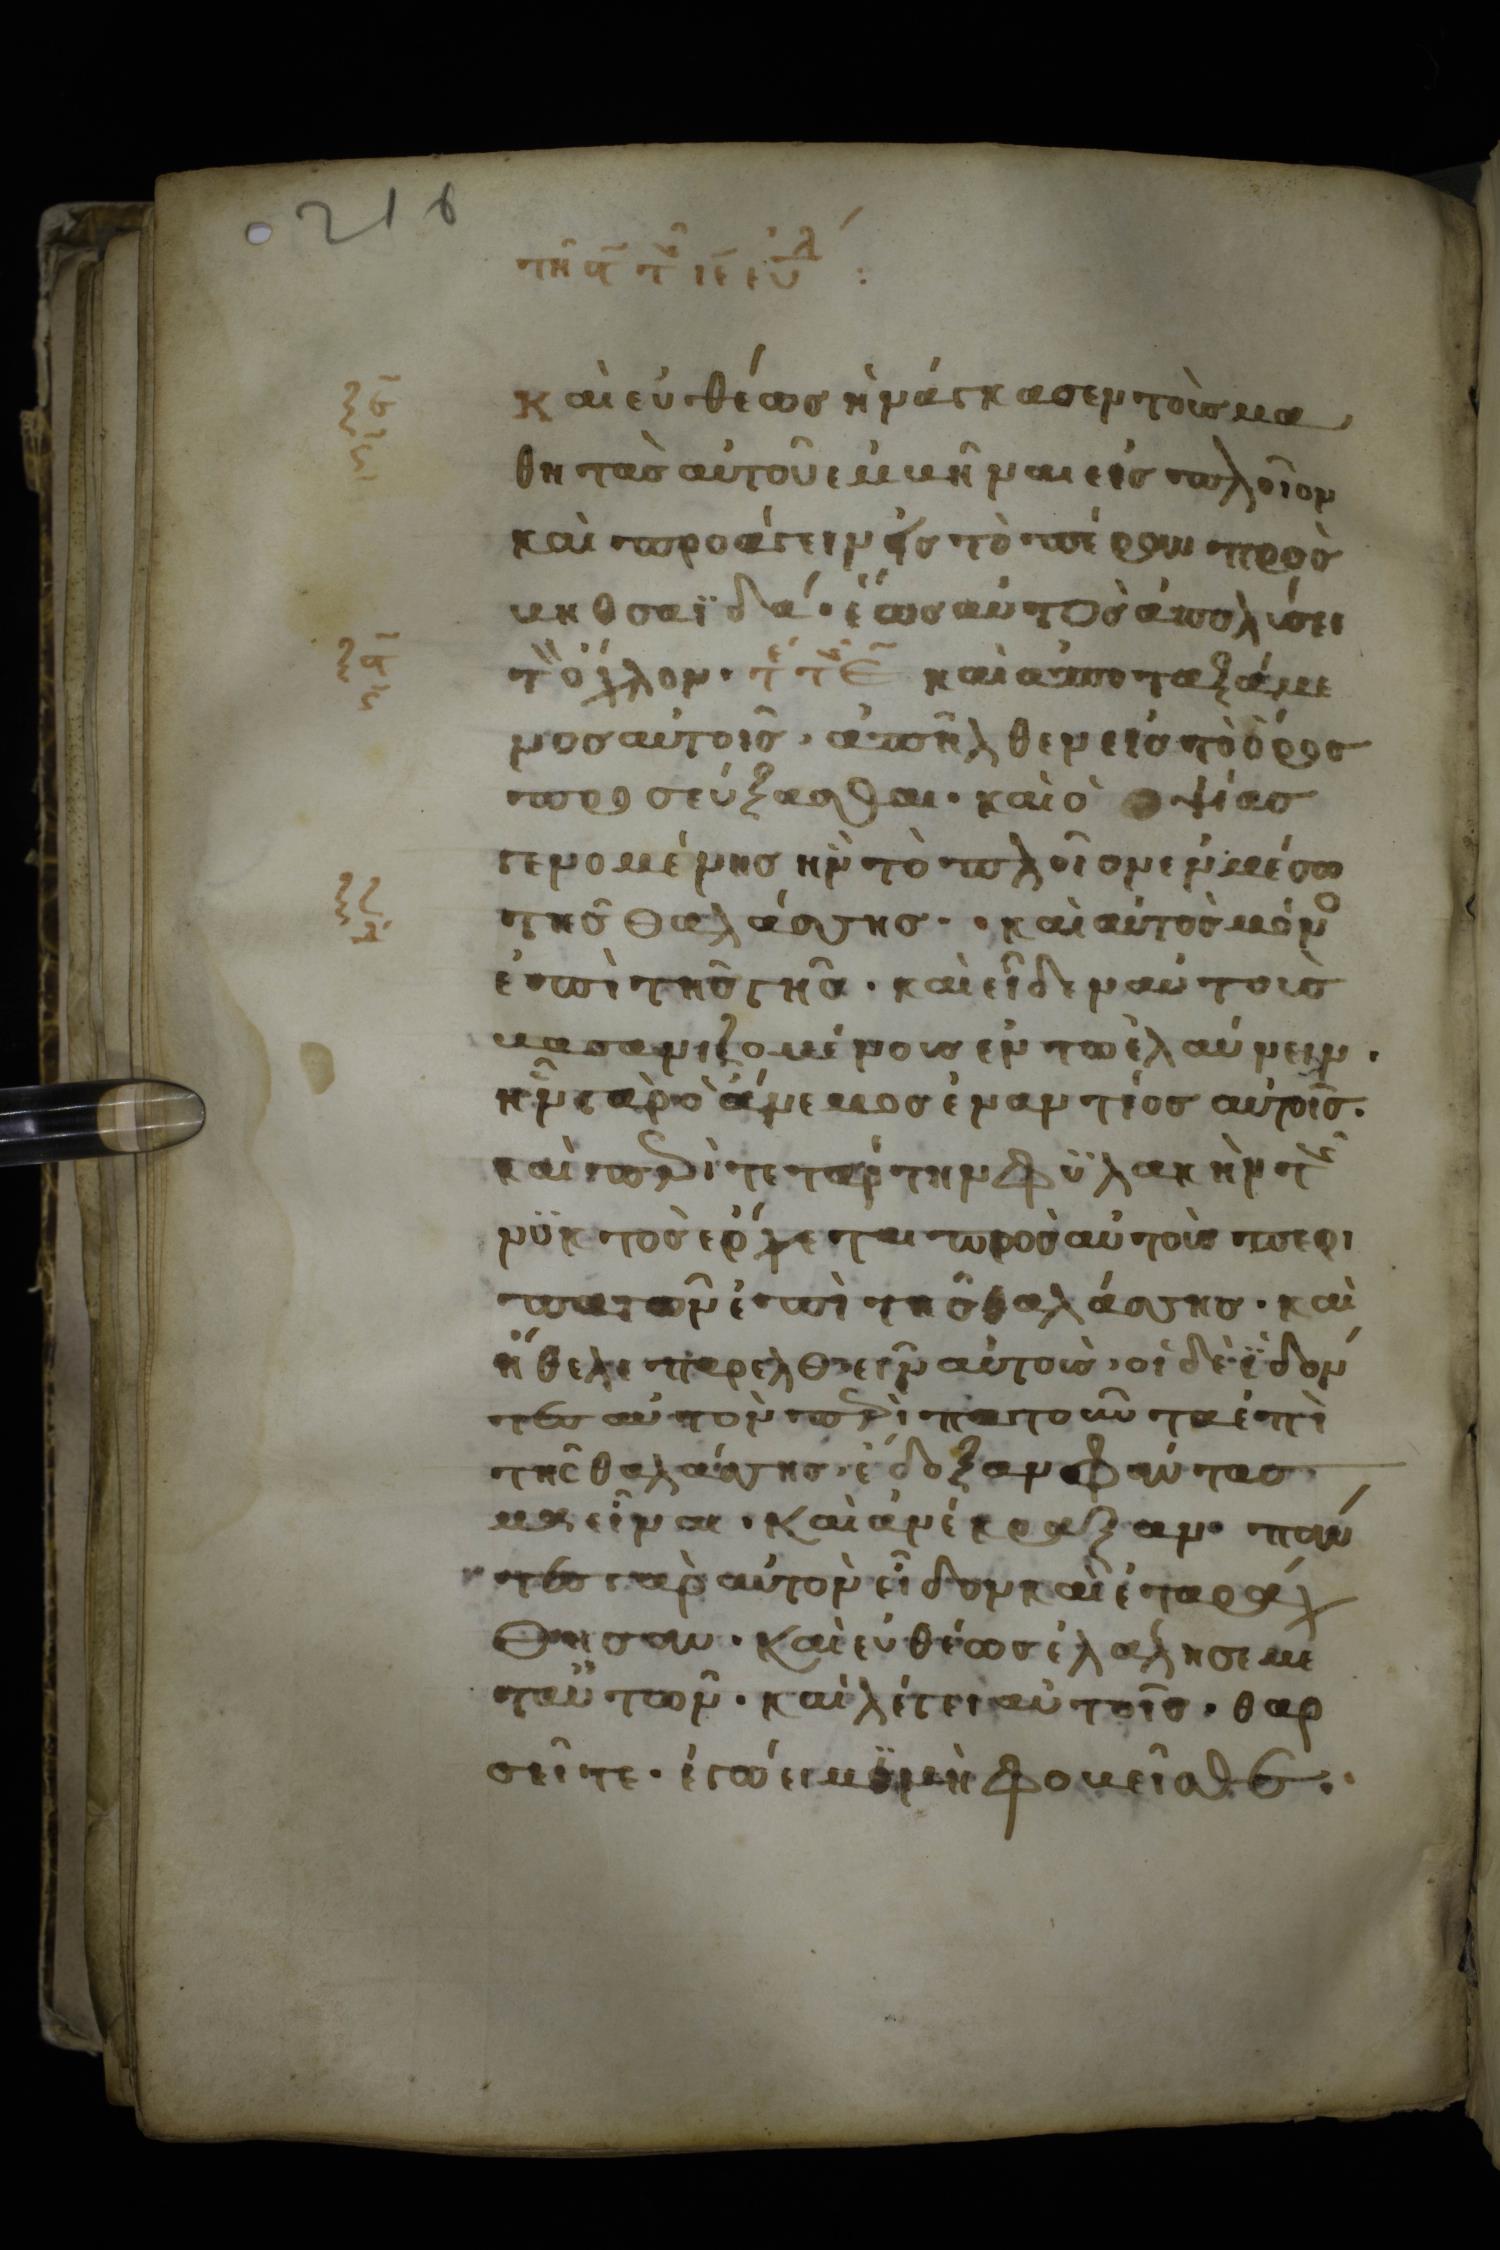 216
τῆ
Καὶ εὐθέως ἠνάγκασεν τοὺς μα
θητὰς αὐτοῦ ἐμβῆναι εἰς πλοῖον
καὶ προάγειν εἰς τὸ πέραν πρὸς
βηθσαϊδά· ἕως αὐτὸς ἀπολύσει
τὸν ὄχλον· καὶ ἀποταξάμε
νος αὐτοῖς, ἀπῆλθεν εἰς τὸ ὄρος
προσεύξασθαι· καὶ ὀψίας
γενομένης ἦν τὸ πλοῖον ἐν μέσω
τῆς θαλάσσης· καὶ αὐτὸς μόνο
ἐπὶ τῆς γῆς· καὶ εἶδεν αὐτοὺς
βασανιζομένους ἐν τῶ ἐλαύνειν·
ἦν γὰρ ὁ ἄνεμος ἐναντίος αὐτοῖς·
καὶ περὶ τετάρτην φϋλακὴν τῆς
νϋκτὸς ἔρχεται πρὸς αὐτοὺς περι
πατῶν ἐπὶ τῆς θαλάσσης· καὶ
ἤθελε παρελθεῖν αὐτοὺς, οἱ δὲ ἰδόν
τες αὐτὸν περὶπατοῦντα ἐπὶ
τῆς θαλάσσης, ἔδοξαν φάντασ
μα εἶναι· καὶ ἀνέκραξαν· πάν
τες γὰρ αὐτὸν εἶδον καὶ ἐταράχ
θησαν· καὶ εὐθέως ἐλάλησε με
τ' αὐτῶν· καὶ λέγει αὐτοῖς· θαρ
σεῖτε· ἐγώ εἰμι μὴ φοβεῖσθε·